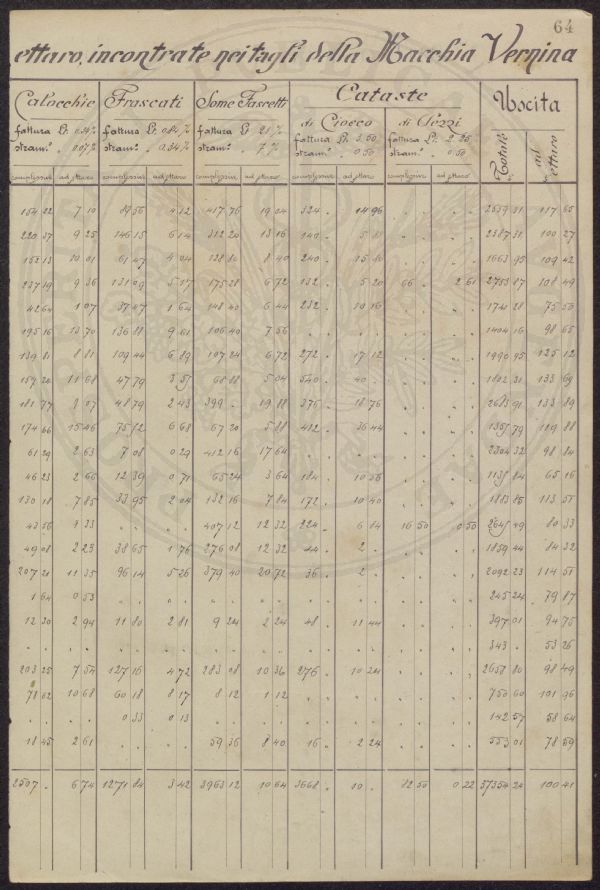 64
ettaro, incontrate nei tagli della Macchia Vernina
Calocchie Frascati Some Fascetti Cataste Uscita
di Ciocco di Pezzi
fattura £. 0.84 % fattura £. 21 % fattura £. 3.50 fattura £. 2.25
stram.° . 0.07 % stram. . 0.34 % stram. . 7 % stram.° . 0.50 stram. . 0.50
Totale ad ettaro
complessive ad ettaro complessive ad ettaro complessive ad ettaro complessive ad ettaro complessive ad ettaro
154 22 7 10 89 56 4 12 417 76 19 04 324 . 14 96 . . . . 2559 31 117 65
220 37 9 25 146 15 6 14 312 20 13 16 140 . . . . . 2387 31 100 27
10 01 61 47 4 04 128 80 8 40 240 . . . . . 1663 95 109 42
237 19 9 36 131 09 5 17 175 28 6 72 132 . 5 20 66 . 2 61 2753 87 108 49
42 64 1 07 37 47 1 64 148 40 6 44 232 . 10 16 . . . . 1741 28 75 53
195 16 13 70 136 88 9 61 106 40 7 56 . . . . . . . 1404 16 98 65
139 81 8 81 109 44 6 89 107 24 6 72 272 . 17 12 . . . . 1990 95 125 12
11 68 47 79 3 51 68 88 5 04 540 . 40 . . . . . 1802 31 133 69
181 77 9 07 48 79 2 43 399 . 19 88 376 . 18 76 . . . . 2683 91 133 89
174 66 15 46 75 12 6 68 67 20 5 88 412 . 36 44 . . . . 79 119 88
61 29 2 63 7 08 0 29 412 16 17 64 . . . . . . . 2304 32 98 84
46 23 2 66 12 39 0 71 65 24 3 64 184 . 10 56 . . . . 84 65 16
130 18 7 85 33 95 2 04 132 16 7 84 172 . 10 40 . . . . 1883 85 113 51
43 56 . . . . 407 12 12 32 224 . 6 84 16 50 0 50 49 80 33
49 08 2 23 38 65 1 76 276 08 12 32 44 . 2 . . . . . 1859 44 84 32
207 21 11 35 96 14 5 26 379 40 20 72 36 . 2 . . . . . 2092 23 114 51
1 64 0 53 . . . . . . . . . . . . . . . . 245 24 79 87
12 30 2 94 11 80 2 81 9 24 2 24 48 . 11 44 . . . . 397 01 94 75
. . . . . . . . . . . . . . . . . . . . 343 . 53 26
203 25 7 54 127 16 4 72 283 08 10 36 276 . 10 24 . . . . 80 98 49
78 62 10 68 60 18 8 17 8 12 1 12 . . . . . . . . 750 60 101 96
. . . . 0 33 0 13 . . . . . . . . . . . . 142 57 58 64
18 45 2 61 . . . . 59 36 8 40 16 . 2 24 . . . . 553 01 78 59
2507 . 6 74 1271 84 3 42 3963 12 10 64 3668 . 10 . 82 50 0 22 37354 24 100 41